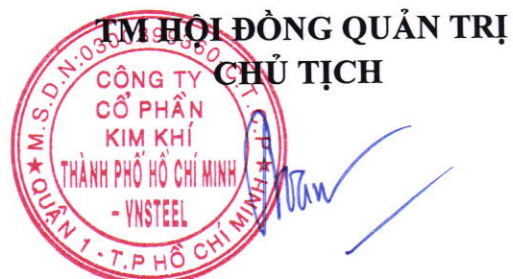 TM HỘI ĐỒNG QUẢN TRỊ
CHỦ TỊCH
M.S.D.N:0300399360-C.T.C.P
CÔNG TY
CỔ PHẦN
KIM KHÍ
THÀNH PHỐ HỒ CHÍ MINH
- VNSTEEL
QUẬN 1 - T.P HỒ CHÍ MINH